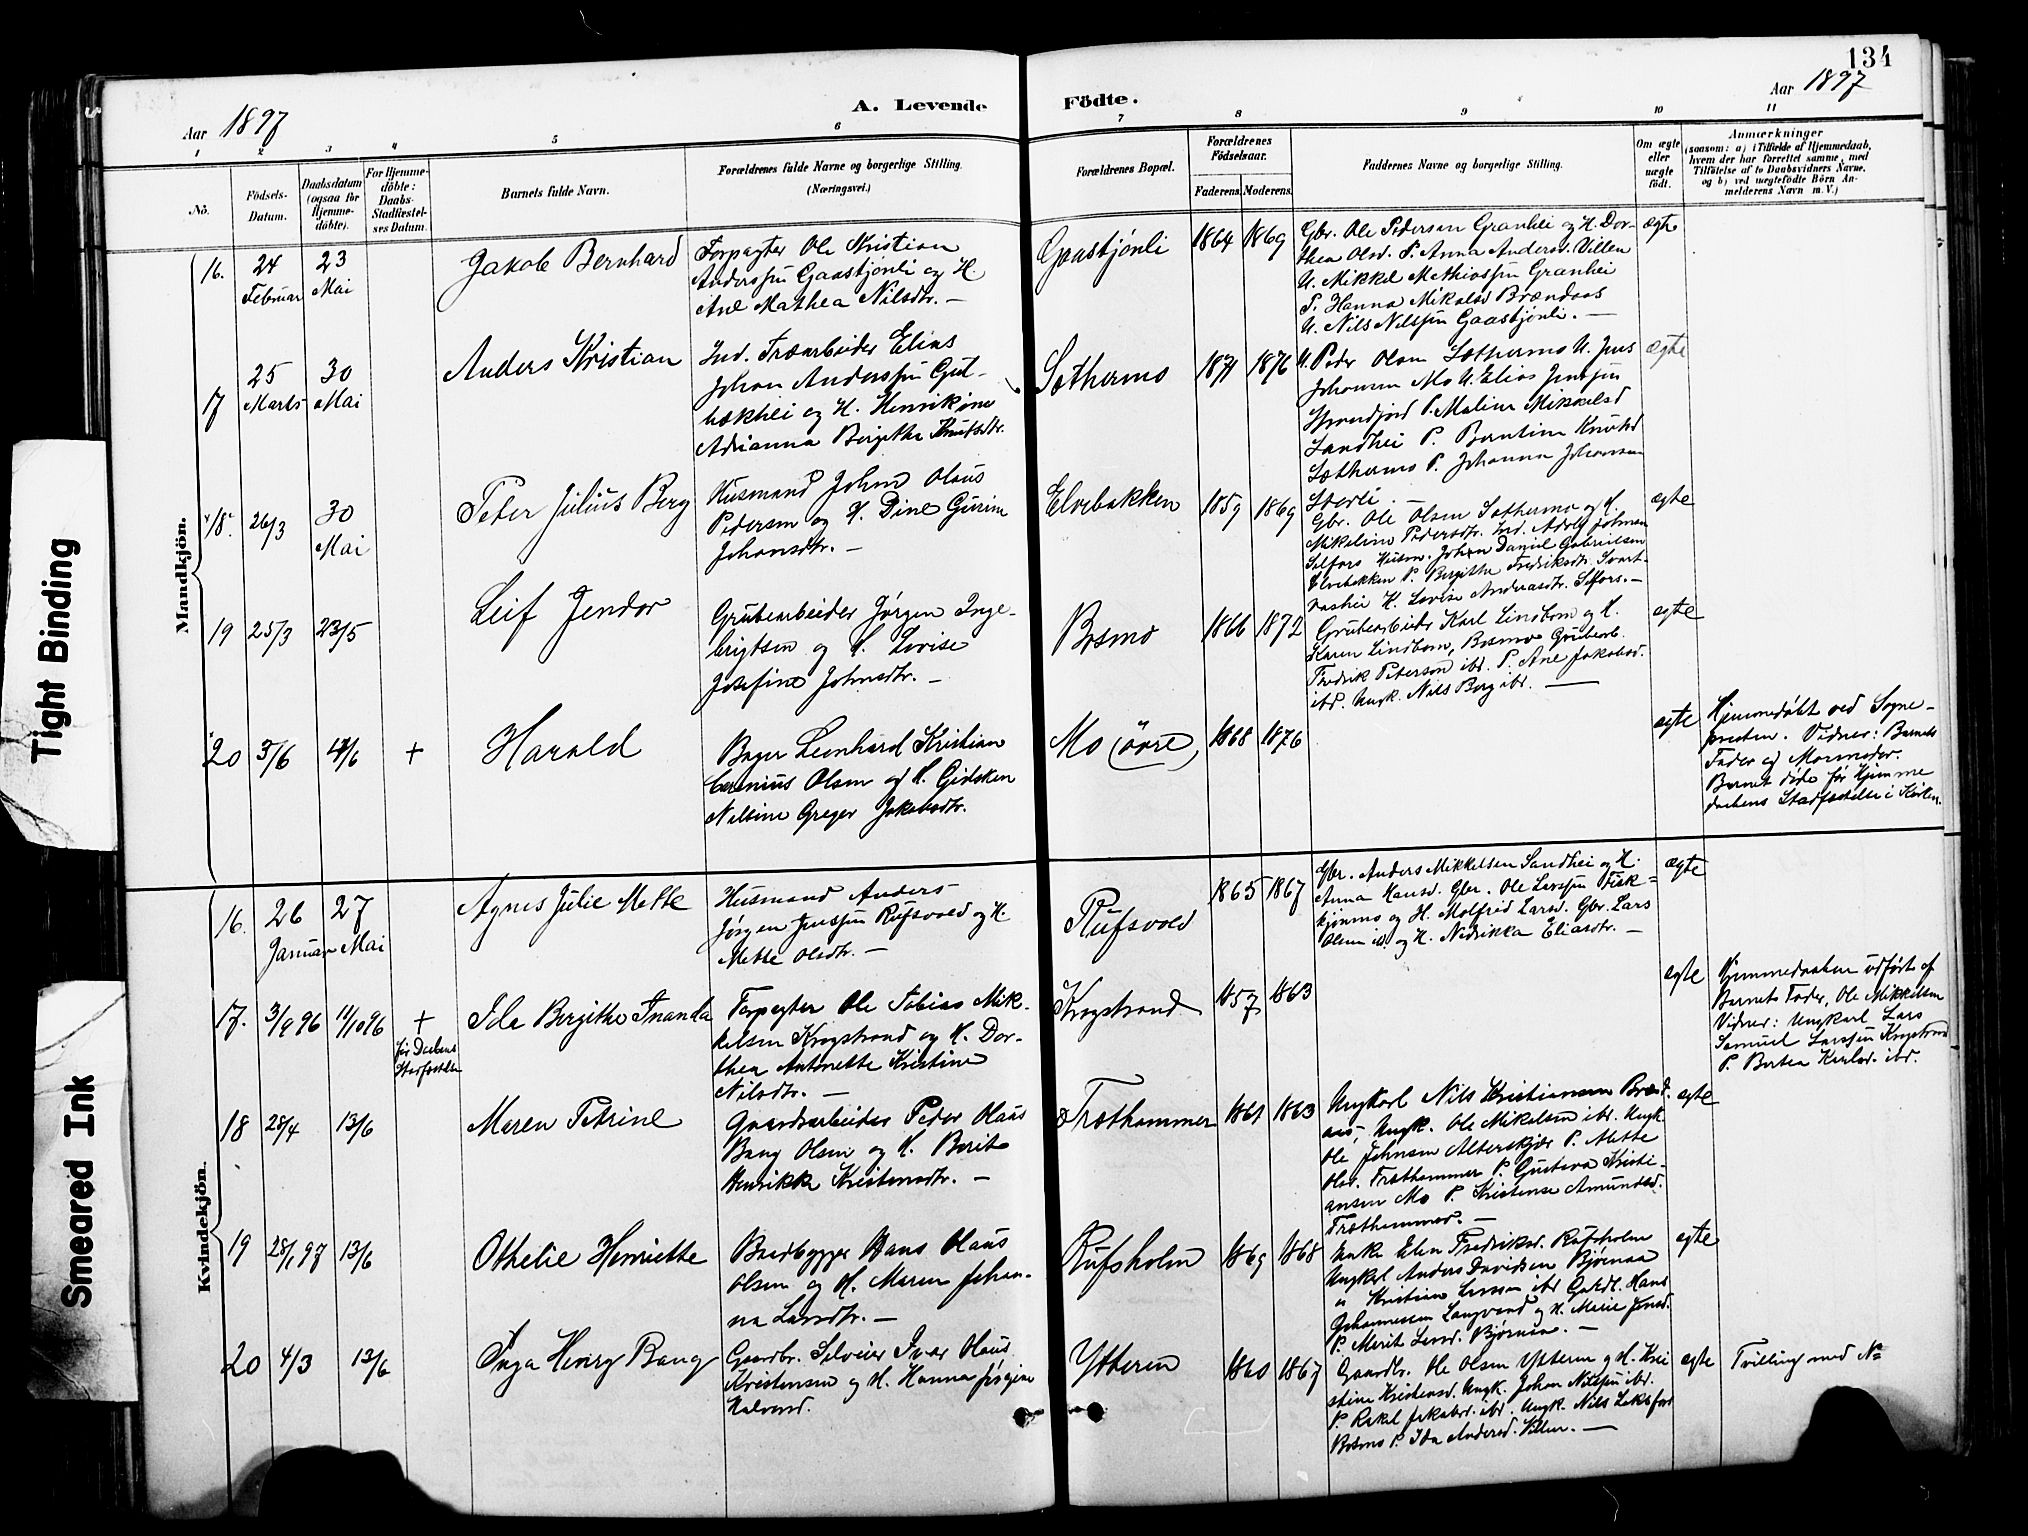 134
Aar 1897
A. Levende Födte.
Aar 1897
1 2 3 4 5 6 7 8 9 10 11
No.
Födsels-
Datum.
Daabsdatum
(ogsaa for
Hjemme-
döbte).
For Hjemme-
döbte:
Daabs-
Stadfæstel-
ses Datum.
Barnets fulde Navn.
Forældrenes fulde Navne og borgerlige Stilling.
(Næringsvei.)
Forældrenes Bopæl.
Forældrenes
Födselsaar.
Faderens. Moderens.
Faddernes Navne og borgerlige Stilling.
Om ægte
eller
uægte
födt.
Anmærkninger
(saasom: a) i Tilfælde af Hjemmedaab,
hvem der har forrettet samme, med
Tilföielse af to Daabsvidners Navne,
og b) ved uægtefödte Börn An-
melderens Navn m. V.)
Mandkjön.
16.
24
Februar
23
Mai
Jakob Bernhard
Forpagter Ole Kristian
Anderssen Gaastjönli og H.
Ane Mathea Nilsdtr. —
Gaastjönli
1864 1869
Gbr. Ole Pedersen Granhei og H. Dor-
thea Olsd. P. Anna Andersd. Villen
U. Mikkel Mathiassen Granhei
P. Hanna Mikalsd Brændaas
U. Nils Nilssen Gaastjönli. —
ægte
17
25
Marts
30
Mai
Anders Kristian
Ind. Træarbeider Elias
Johan Anderssen Gul-
bækhei og H. Henrikine
Adrianna Bergitte Knutsdtr.
Sæthermo
1871 1876
U. Peder Olsen Sætthermo U. Jens
Johansen Mo U. Elias Jenssen
Strandjord P. Maline Mikkelsd
Sandhei P. Berntine Knutsd
Sæthermo P. Johanna Johansen
Storli. —
ægte
18.
26/3
30
Mai
Peter Julius Berg
Husmand Johan Olaus
Pedersen og H. Dine Gurine
Johansdtr. —
Elvebakken
1859 1869
Gbr. Ole Olsen Sæthermo og H.
Mikeline Pedersdtr. Ind. Adolf Johnsen
Selfors Husm. Johan Daniel Gabrielsen
Elvebakken P. Bergithe Fredriksdtr. Svart-
vashei H. Lovise Andreasdtr. Selfors. —
ægte
19
25/3
23/5
Leif Jendor
Grubearbeider Jørgen Inge-
brigtsen og H. Lovise
Josefine Johnsdtr. —
Bosmo
1866 1872
Grubearbeider Karl Lindbom og H.
Karen Lindbom, Bosmo Grubearb.
Fredrik Peterson ibd. P. Ane Jakobsd.
ibd. Ungk. Nils Berg ibd. —
ægte
20
3/6
4/6
+
Harald
Bager Leonhard Kristian
Cerenius Olsen og H. Gidsken
Nilsine Greger Jakobsdtr.
Mo (övre)
1868 1876
ægte
Hjemmedøbt ved Sogne-
presten. Vidner: Barnets
Fader og Mormoder.
Barnet døde før Hjemme
daabens Stadfæstelse i Kirken.
Kvindekjön.
16.
26
Januar
27
Mai
Agnes Julie Mette
Husmand Anders
Jörgen Jenssen Rufsvold og H.
Mette Olsdtr. —
Rufsvold
1865 1867
Gbr. Anders Mikkelsen Sandhei og H.
Anna Hansd. Gbr. Ole Larssen Fisk=
tjønmo og H. Molfrid Larsd. Gbr. Lars
Olsen ib. og H. Nidrikka Eliasdtr. —
ægte
17.
3/9 96
11/10 96
+
før Daabens
Stadfæstelse
Ida Bergithe Inanda
Forpagter Ole Tobias Mik-
kelsen Krogstrand og H. Dor-
thea Antonette Kristine
Nilsdtr. —
Krogstrand
1857 1863
ægte
Hjemmedaaben udført af
Barnets Fader, Ole Mikkelsen
Vidner: Ungkarl Lars
Samuel Larssen Krogstrand
P. Bertea Karlsd. ibd.
18
28/4
13/6
Maren Petrine
Gaardsarbeider Peder Olaus
Bang Olsen og H. Berit
Henrikke Kristensdtr. —
Træthammer
1861 1863
Ungkarl Nils Kristiansen Bræd-
aas, Ungk. Ole Mikelsen ibd. Ungk
Ole Johnsen Alterskjær P. Mette
Olsd. Træthammer P. Gustava Kristi-
ansen Mo P. Kristense Amundsd.
Træthammer. —
ægte
19
28/1 97
13/6
Othelie Henriette
Baadbygger Hans Olaus
Olsen og H. Maren Johan-
na Larsdtr. —
Rufsholm
1869 1868
Enke Elen Fredriksd. Rufsholm
Ungkarl Anders Davidsen Bjørnaa
" Kristian Larsen ibd Gardt. Hans
Johannessen Langvand og H. Marie Jensd.
P. Merit Larsd. Bjørnaa. —
ægte
20
4/3
13/6
Inga Henry Bang
Gaardbr. Selveier Ivar Olaus
Kristensen og H. Hanna Jørgine
Halvorsd.
Ytteren
1860 1867
Gaardbr. Ole Olsen Ytteren og H. Kri
stine Kristensd. Ungk. Johan Nilssen ibd.
P. Rakel Jakobsd. ibd. Ungk. Nils Laksfors
Bosmo P. Ida Andersd. Villen. —
ægte
Tvilling med No
Tight Binding
Smeared Ink